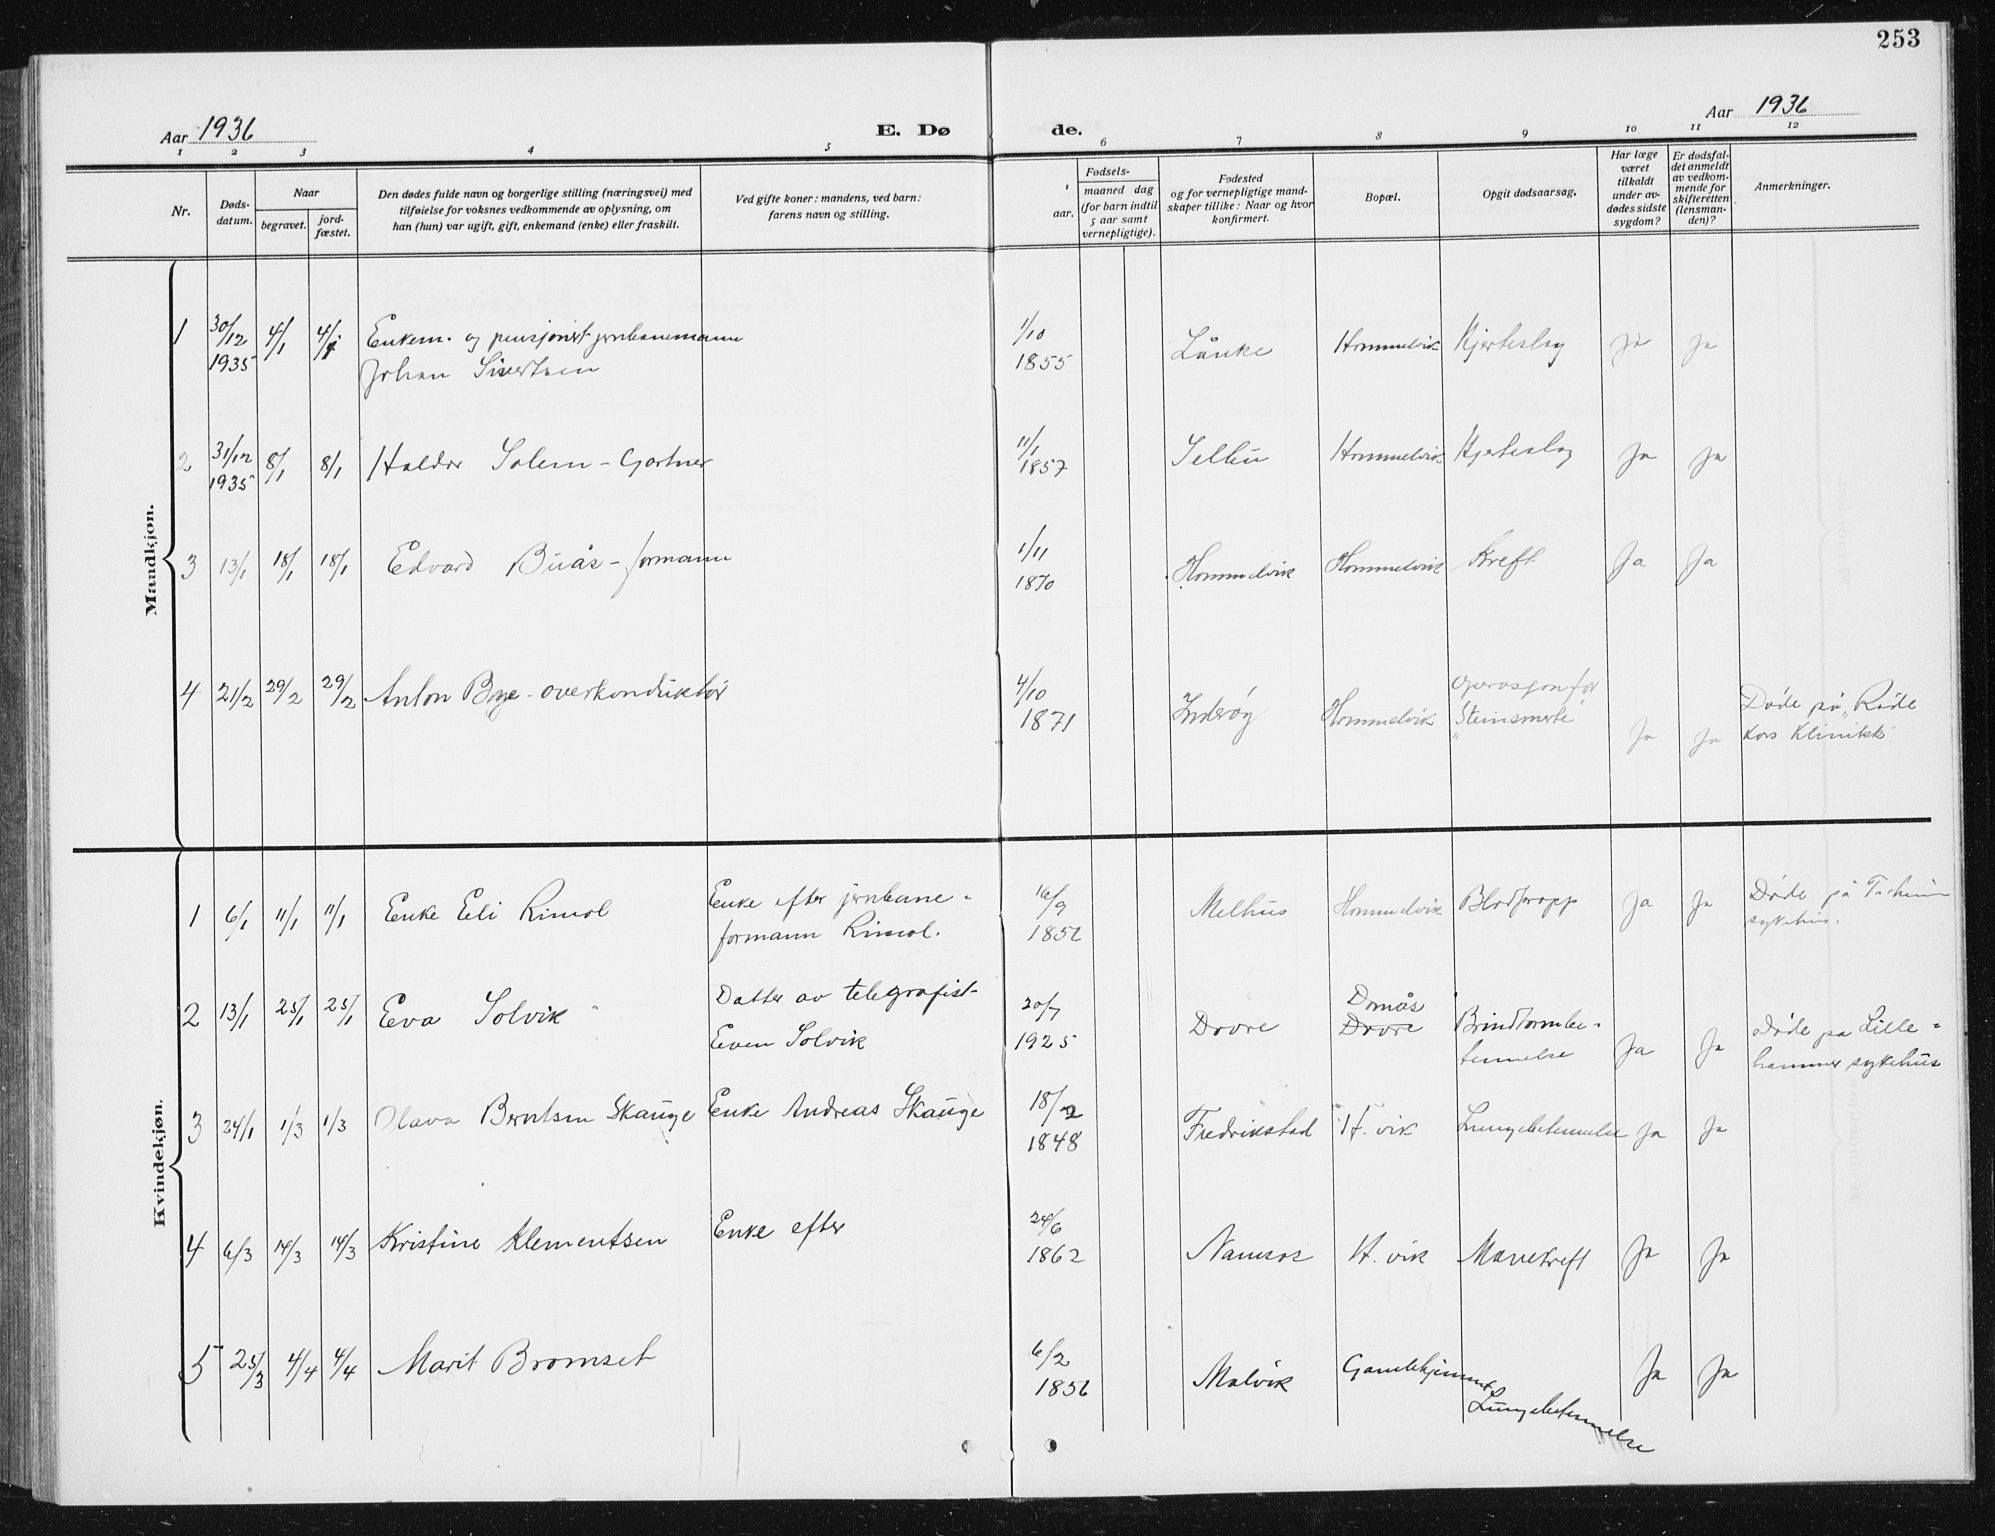 253
Aar 1936
E. Dø de.
Aar 1936
1 2 3 4 5 6 7 8 9 10 11 12
Nr.
Døds-
datum.
Naar
begravet.
jord-
fæstet.
Den dødes fulde navn og borgerlige stilling (næringsvei) med
tilføielse for voksnes vedkommende av oplysning, om
han (hun) var ugift, gift, enkemand (enke) eller fraskilt.
Ved gifte koner: mandens, ved barn:
farens navn og stilling.
aar.
Fødsels-
maaned dag
(for barn indtil
5 aar samt
vernepligtige).
Fødested
og for vernepligtige mand-
skaper tillike: Naar og hvor
konfirmert.
Bopæl.
Opgit dødsaarsag.
Har læge
været
tilkaldt
under av-
dødes sidste
sygdom?
Er dødsfal-
det anmeldt
av vedkom-
mende for
skifteretten
(lensman-
den)?
Anmerkninger.
Mandkjøn.
1 30/12 1935 4/1 4/1 Enkem. og pensjonert jernbanemann
Johan Sivertsen
1/10 1855 Lånke Hommelvik Hjerteslag Ja Ja
2 31/12 1935 8/1 8/1 Haldor Solem - Gartner
11/1 1857 Selbu Hommelvik Hjerteslag Ja Ja
3 13/1 18/1 18/1 Edvard Buås - formann
1/11 1870 Hommelvik Hommelvik Kreft Ja Ja
4 21/2 29/2 29/2 Anton Bye - overkonduktør
4/10 1871 Inderøy Hommelvik Operasjon for
"Steinsmerte" Ja Ja
Døde på "Røde
Kors Klinikk"
Kvindekjøn.
1 6/1 11/1 11/1 Enke Eli Rimol
Enke efter jernbane-
formann Rimol.
16/9 Melhus Hommelvik Blodpropp Ja Ja
Døde på
sykehus.
2 13/1 25/1 25/1 Eva Solvik
Datter av telegrafist
Even Solvik
20/7 1925 Dovre
Domås
Dovre
Brindtarmbe-
tennelse Ja Ja
Døde på Lille-
hammer sykehus
3 24/1 1/3 1/3 Olava Berntsen Skauge Enke Andreas Skauge
18/2 1848 Fredrikstad H.vik Lungebetennelse Ja Ja
4 6/3 14/3 14/3 Kristine Klementsen Enke efter
24/6 1862 Namsos H.vik Mavekreft Ja Ja
5 25/3 4/4 4/4 Marit Bromset
6/2 1856 Malvik Gamlehjemmet Ja Ja
Lungebetennelse